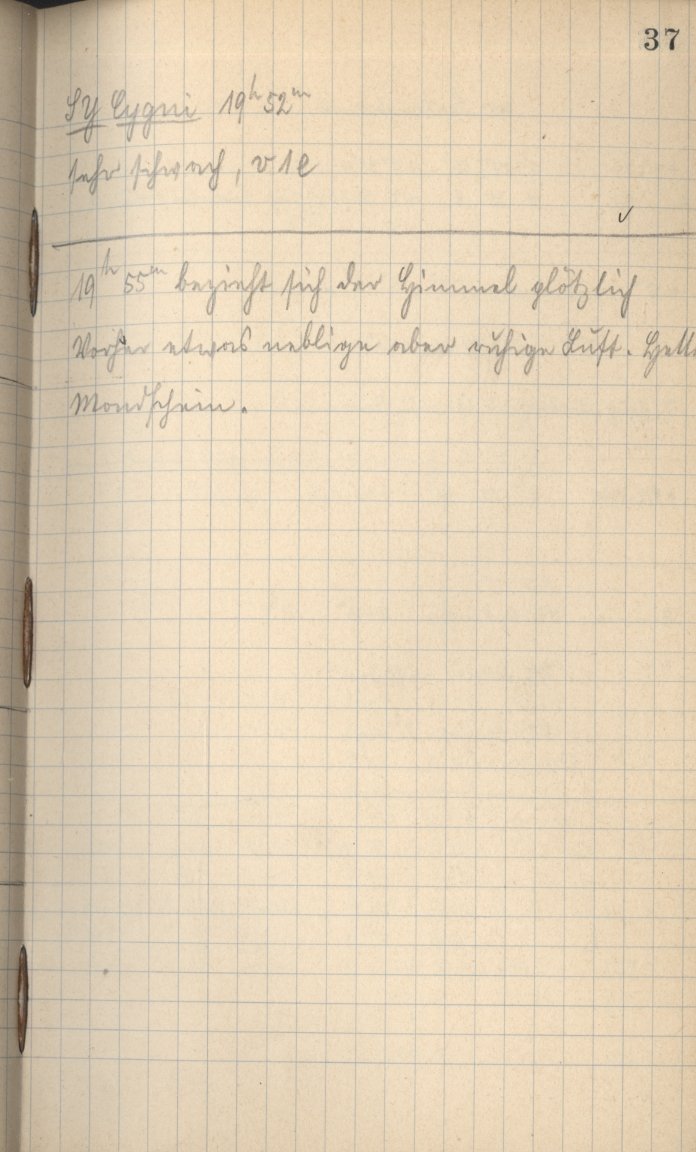 37
SY Cygni 19ʰ 52ᵐ
sehr schwach, v 1 e
✓
19ʰ 55ᵐ bezieht sich der Himmel plötzlich
Vorher etwas neblige aber ruhige Luft. Helle
Mondschein.